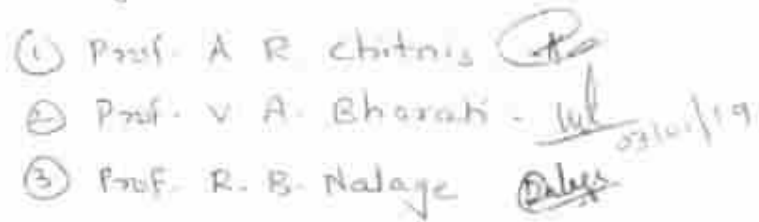 ① Prof. A R Chitnis
② Prof. V. A. Bharati -
③ Prof. R. B. Nalage